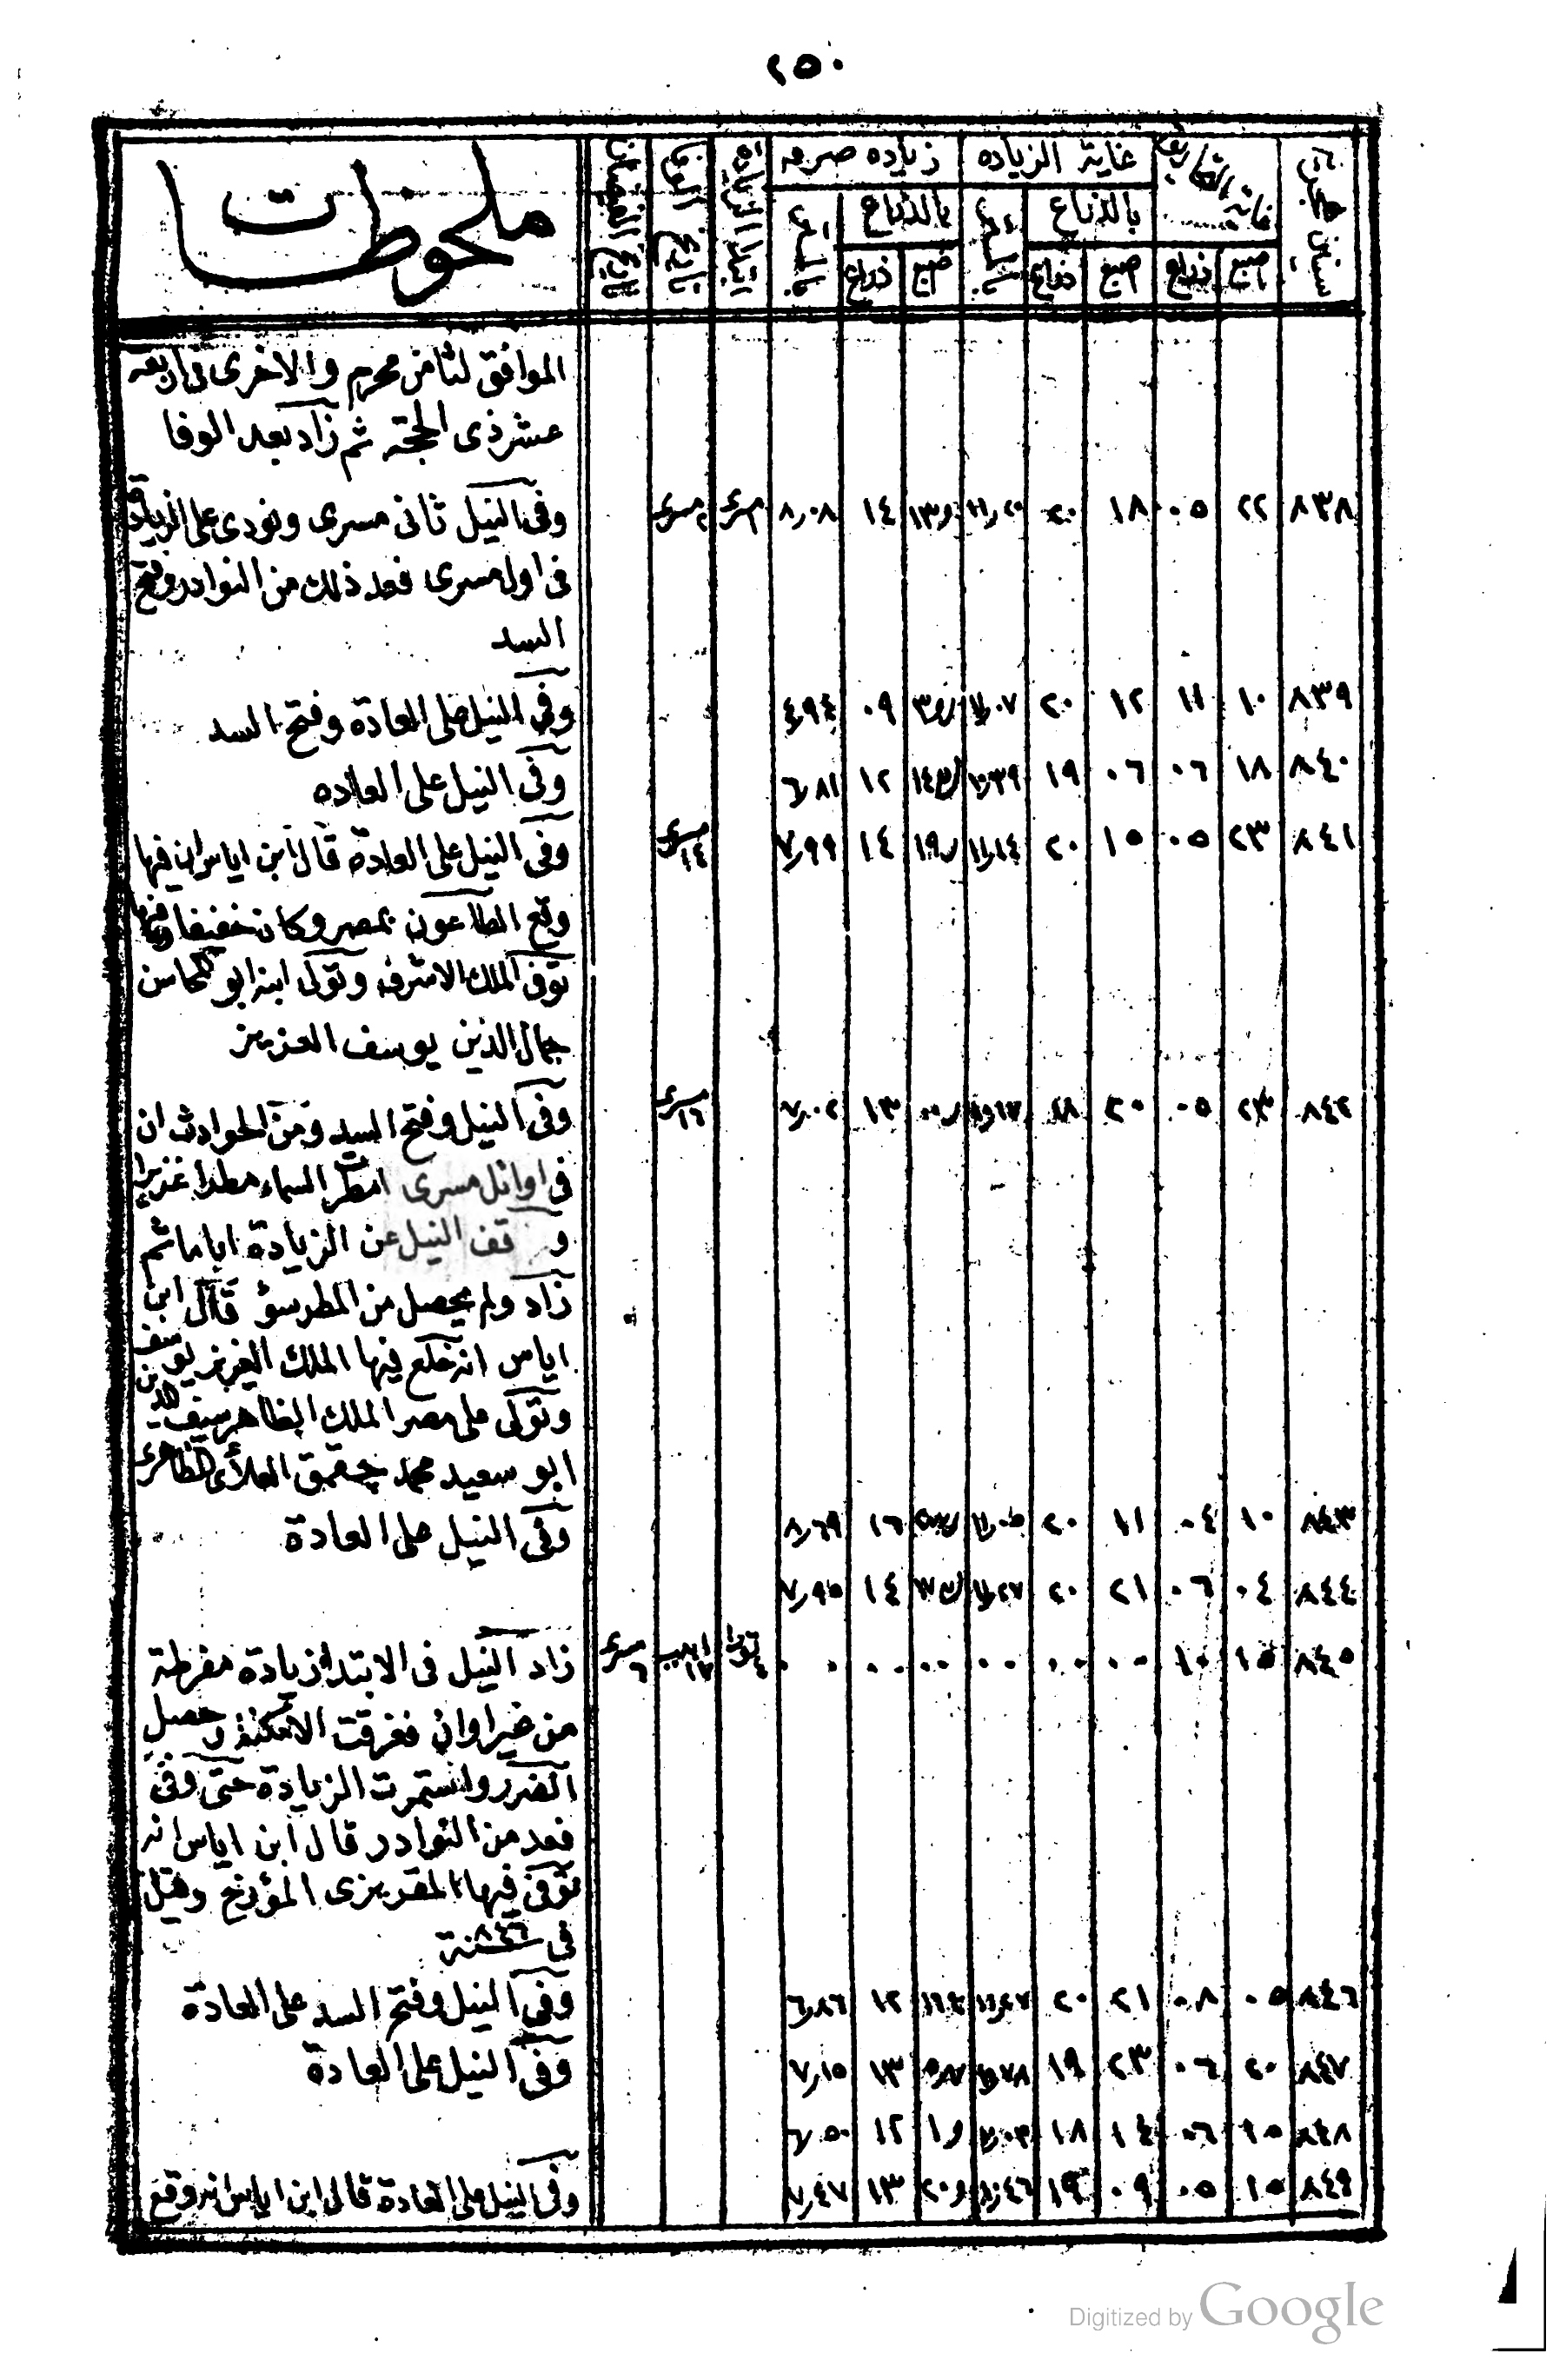 ٢٥٠
سنين هجرية
غاية التحاريق
غاية الزيادة
زيادة صرفه
ابتداء الزيادة
تاريخ الوفا
تاريخ النقصان
ملحوظات
بالذراع
بالذراع
اصبع ذراع اصبع ذراع اصبع ذراع
الموافق لثامن محرم والاخرى فى اربعة
عشر ذى الحجة ثم زاد بعد الوفا
٨٣٨ ٢٢ ٠٥ ١٨ ٢٠ ١١٫٢٠ ١٤ ٨٫٠٨ مسرى ٢ مسرى وفى النيل ثانى مسرى ونودى على الزيادة
فى اول مسرى فعد ذلك من النوادر وفتح
السد
٨٣٩ ١٠ ١١ ١٢ ٢٠ ١١٫٠٧ ٠٩ ٤٫٩٤ وفى النيل على العادة وفتح السد
٨٤٠ ١٨ ٠٦ ٠٦ ١٩ ١٠٫٣٩ ١٢ ٦٫٨١ وفى النيل على العاده
٨٤١ ٢٣ ٠٥ ١٥ ٢٠ ١١٫١٤ ١٤ ٧٫٩٩ مسرى ١٤ وفى النيل على العادة قال ابن اياس ان فيها
وقع الطاعون بمصر وكان خفيفا وفيها
توفى الملك الاشرف وتولى ابنه ابو المحاسن
جمال الدين يوسف العزيز
٨٤٢ ٢٣ ٠٥ ٢٠ ١٨ ١٣ ٧٫٠٢ مسرى ١٦ وفى النيل وفتح السد ومن الحوادث ان
فى اوائل مسرى امطرت السماء مطرا غزيرا
و قف النيل عن الزيادة اياما ثم
زاد ولم يحصل من المطر سؤ قال ابن
اياس انه خلع فيها الملك العزيز يوسف
وتولى على مصر الملك الظاهر سيف الدين
ابو سعيد محمد چقمق العلائى الظاهرى
٨٤٣ ١٠ ٠٤ ١١ ٢٠ ١١٫٠٥ ١٦ ٨٫٦٩ وفى النيل على العادة
٨٤٤ ٠٤ ٠٦ ٢١ ٢٠ ١١٫٢٧ ١٤ ٧٫٩٥
٨٤٥ ١٥ ١٠ ٠٠ ٠٠ ٠٠ ٠٠ ٠٠ ٠ ٠ ٤ ابيب ١٧ مسرى ٦ زاد النيل فى الابتدا زيادة مفرطة
من غير اوان فغرقت الامكنة وحصل
الضرر واستمرت الزيادة حتى وفى
فعد من النوادر قال ابن اياس انه
توفى فيها المقريزى المؤرخ وقيل
فى سنة ٨٤٦
٨٤٦ ٠٥ ٠٨ ٢١ ٢٠ ١١٫٢٧ ١٢ ٦٫٨٦ وفى النيل وفتح السد على العادة
٨٤٧ ٢٠ ٠٦ ٢٣ ١٩ ١٠٫٧٨ ١٣ ٧٫١٥ وفى النيل على العادة
٨٤٨ ١٥ ٠٦ ١٤ ١٨ ١٢ ٦٫٥٠
٨٤٩ ١٥ ٠٥ ٠٩ ١٩ ١٠٫٤٦ ١٣ ٧٫٤٧ وفى النيل على العادة قال ابن اياس انه وقع
Digitized by Google